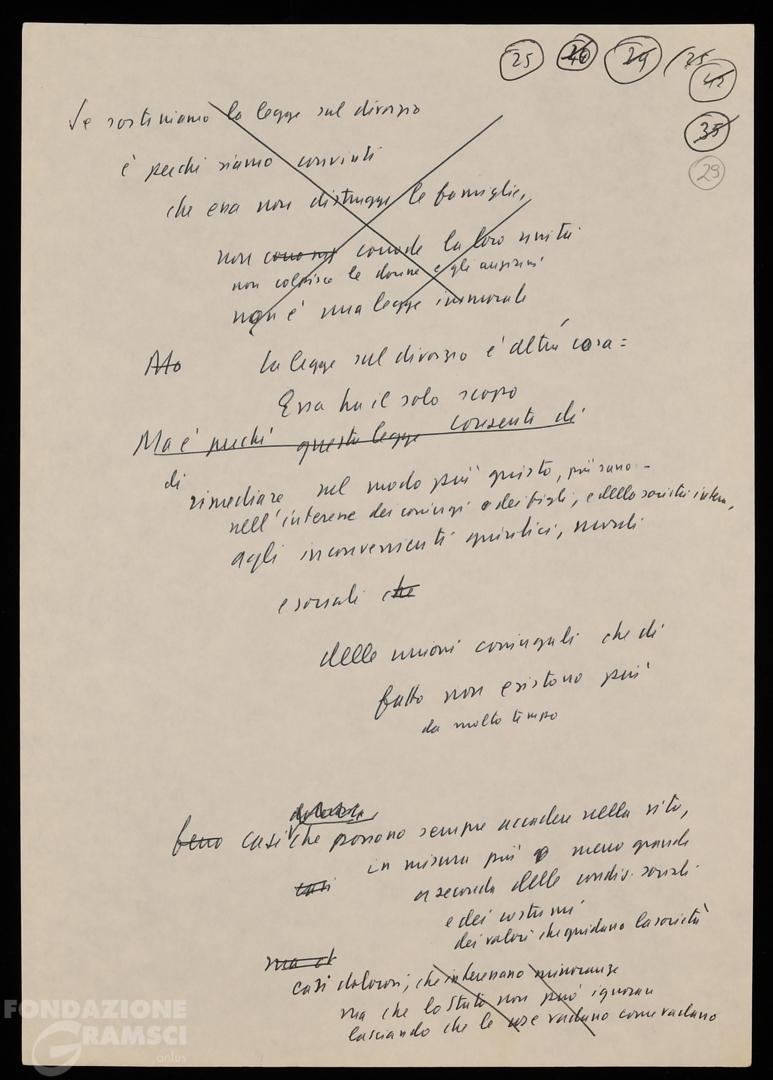 25 20 29 25
45
35
29
Se sosteniamo la legge sul divorzio
è perché siamo convinti
che essa non distrugge le famiglie,
non corrode la loro unità
non colpisce le donne e gli anziani
non è una legge immorale
Ma La legge sul divorzio è altra cosa =
Essa ha il solo scopo
Ma è perché questa legge consente di
di
rimediare nel modo più giusto, più sano -
nell'interesse dei coniugi e dei figli, e della società intera,
agli inconvenienti giuridici, morali
e sociali che
delle unioni coniugali che di
fatto non esistono più
da molto tempo
dolorosi
sono casi che possono sempre accadere nella vita,
in misura più o meno grande
casi a seconda delle condiz. sociali
e dei costumi
dei valori che guidano la società
ma ci
casi dolorosi, che interessano minoranze
ma che lo Stato non può ignorare
lasciando che le cose vadano come vadano
FONDAZIONE
GRAMSCI
onlus